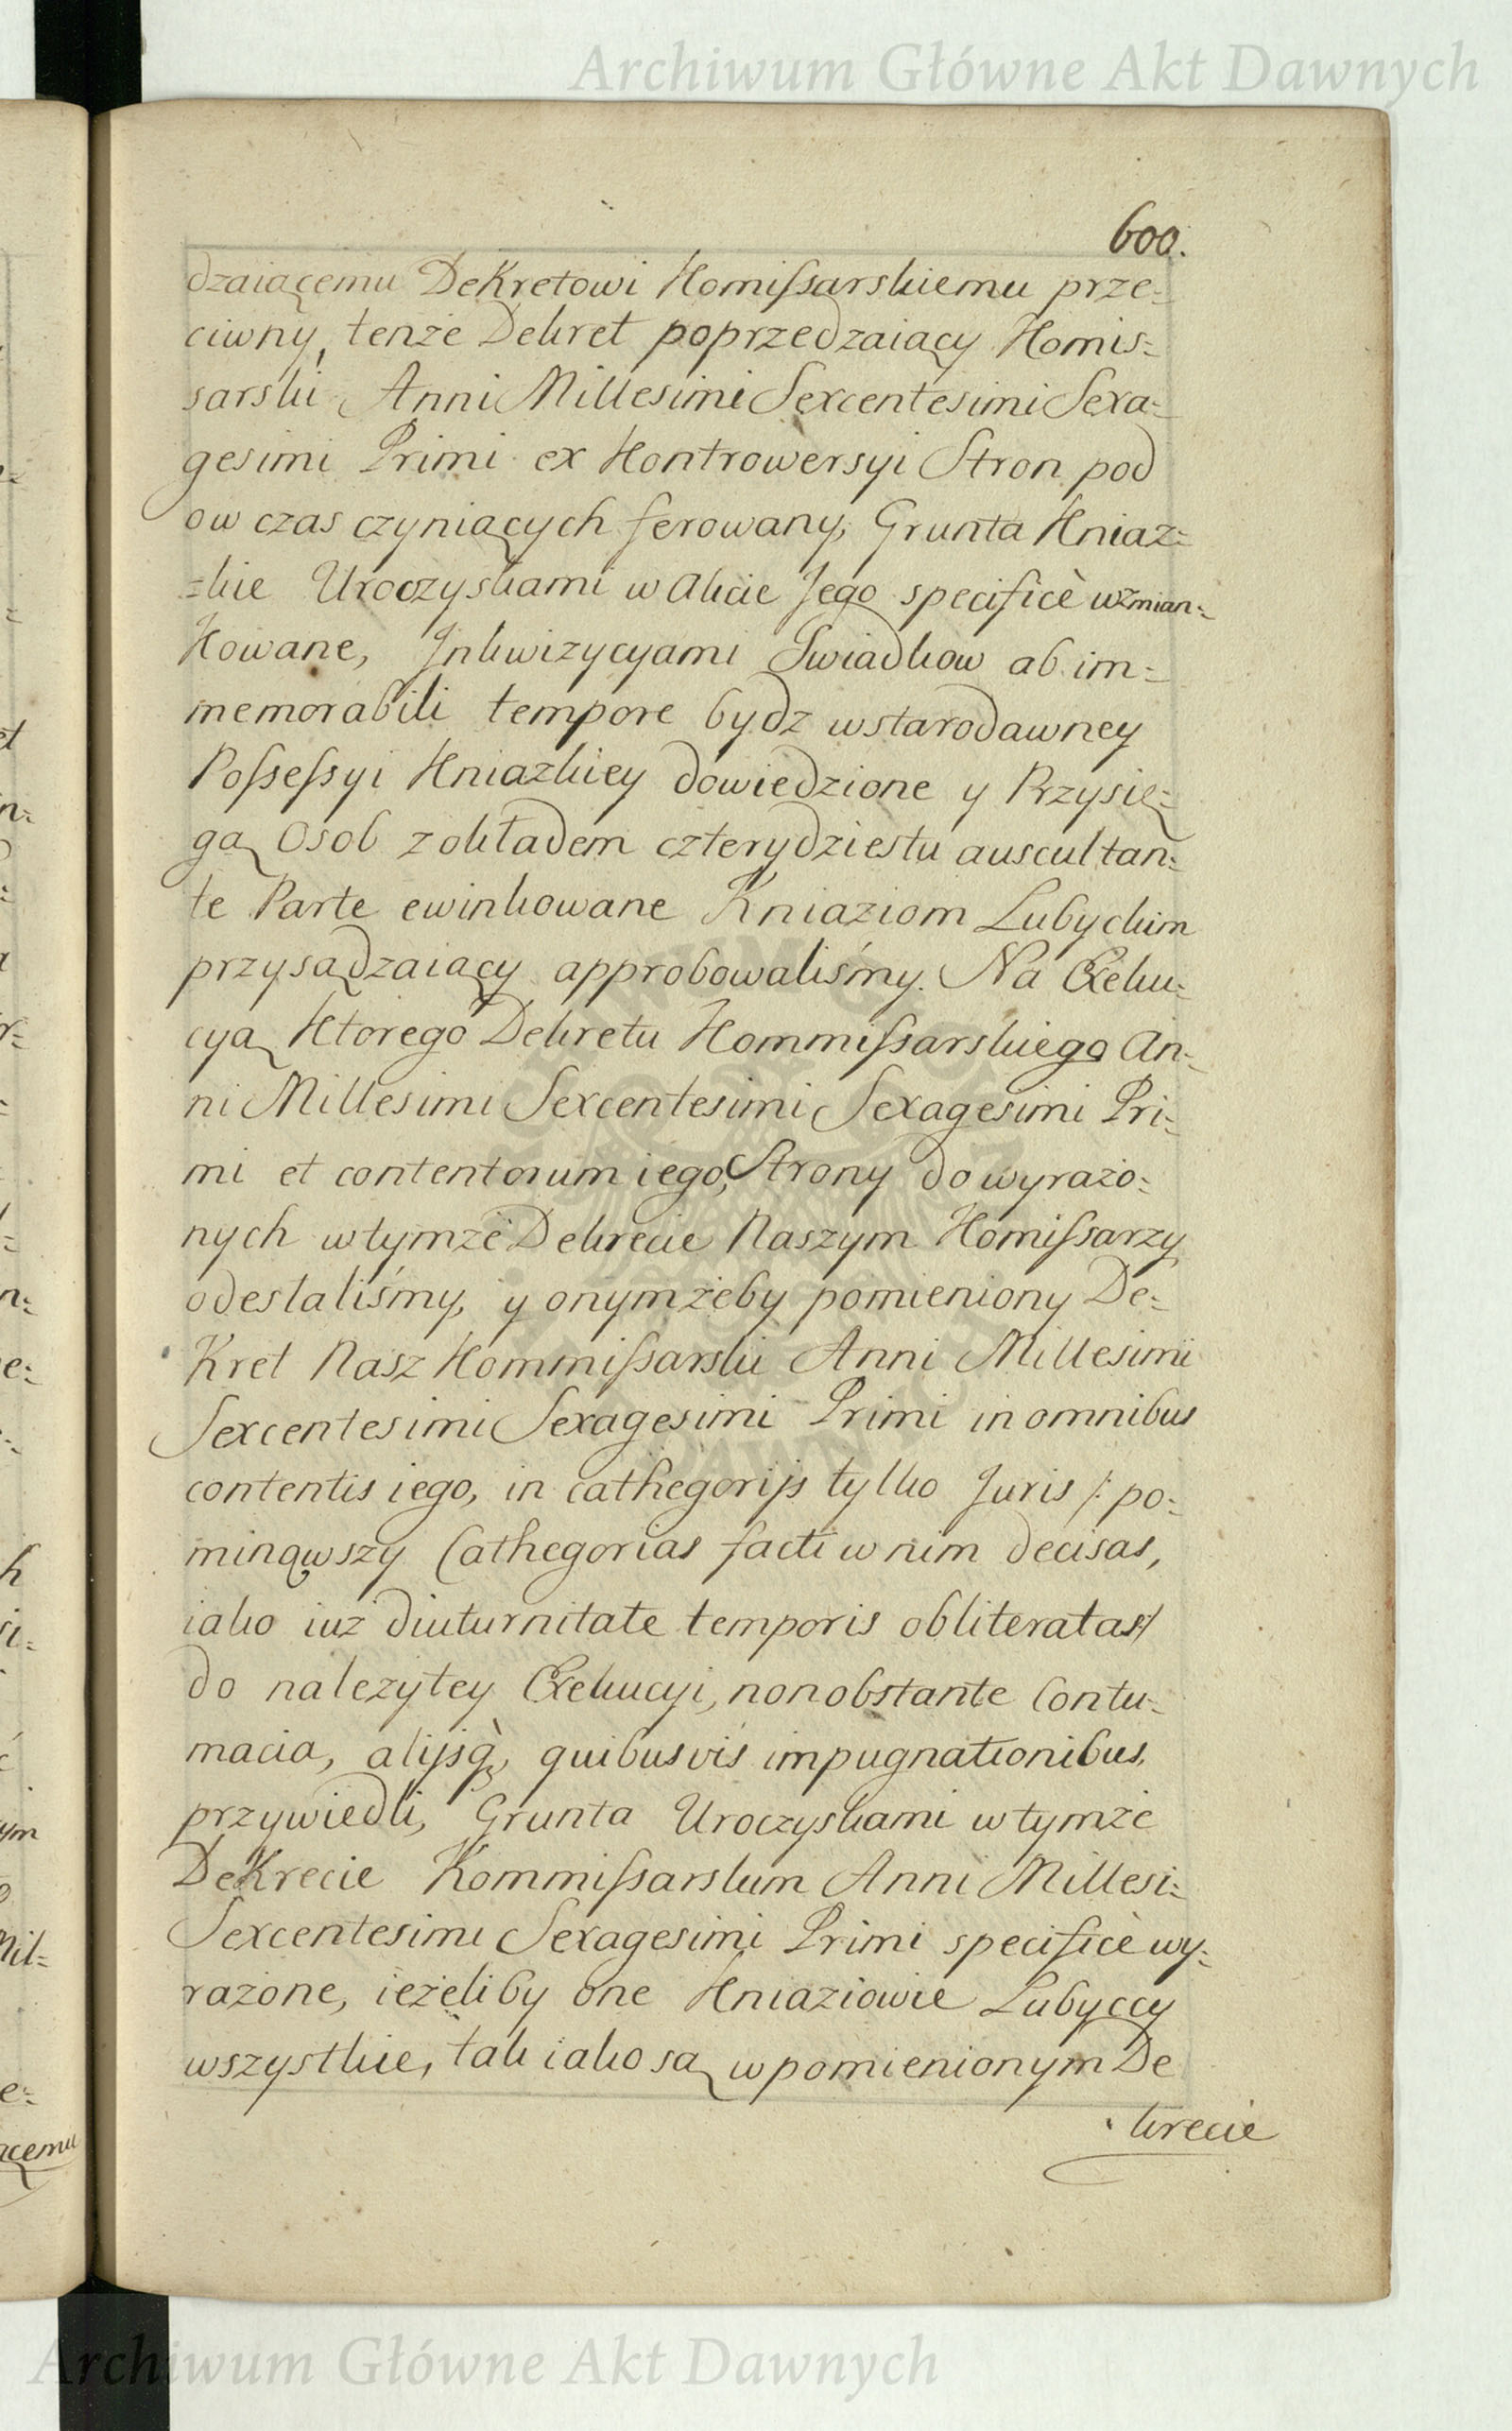 Archiwum Główne Akt Dawnych
600.
dzaiącemu Dekretowi Komissarskiemu prze=
ciwny, tenże Dekret poprzedzaiący Komis=
sarski Anni Millesimi Sexcentesimi Sexa=
gesimi Primi ex Kontrowersyi Stron pod
ow czas czyniących ferowany, Grunta Kniaz=
=kie Uroczyskami w Akcie Jego specificè wzmian=
kowane, Jnkwizycyami Swiadkow ab im=
memorabili tempore bydz w starodawney
Possessyi Kniazkiey dowiedzione y Przysię=
gą Osob z okładem czterydziestu auscultan=
te Parte ewinkowane Kniaziom Lubyckim
przysądzaiący approbowaliśmy. Na Exeku=
cyą Ktorego Dekretu Kommissarskiego An=
ni Millesimi Sexcentesimi Sexagesimi Pri=
mi et contentorum iego, Strony do wyrażo=
nych w tymże Dekrecie Naszym Komissarzy
odesłaliśmy, y onym żeby pomieniony De=
kret Nasz Kommissarski Anni Millesimi
Sexcentesimi Sexagesimi Primi in omnibus
contentis iego, in cathegorijs tylko Juris /: po=
minąwszy Cathegorias facti w nim decisas,
iako iuż diuturnitate temporis obliteratas :/
do nalezytey Exekucyi, non obstante Contu=
macia, alijsq, quibusvis impugnationibus,
przywiedli, Grunta Uroczyskami w tymże
Dekrecie Kommissarskim Anni Millesi=
Sexcentesimi Sexagesimi Primi specificè wy=
rażone, ieżeliby one Kniaziowie Lubyccy
wszystkie, tak iako są w pomienionym De
krecie
Archiwum Główne Akt Dawnych